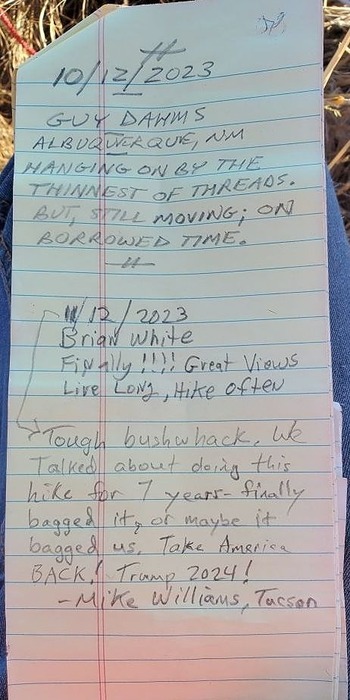 10/12/2023
GUY DAHMS
ALBUQUERQUE, NM
HANGING ON BY THE
THINNEST OF THREADS.
BUT, STILL MOVING; ON
BORROWED TIME.
11/12/2023
Brian White
Finally !!!! Great Views
Live Long, Hike Often
Tough bushwhack. We
Talked about doing this
hike for 7 years - finally
bagged it, or maybe it
bagged us. Take America
BACK! Trump 2024!
- Mike Williams, Tucson